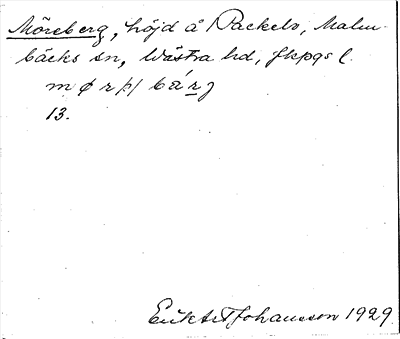 Möreberg, höjd å Packels, Malm-
bäcks sn, Västra hd, Jkpgs l.
m ø r þ/ b á r j
13.
Johansson 1929